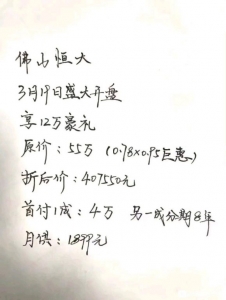 佛山恒大
3月19日盛大开盘
享12万豪礼
原价：55万（0.78×0.95巨惠）
折后价：407550元
首付1成：4万 另一成分期3年
月供：1899元